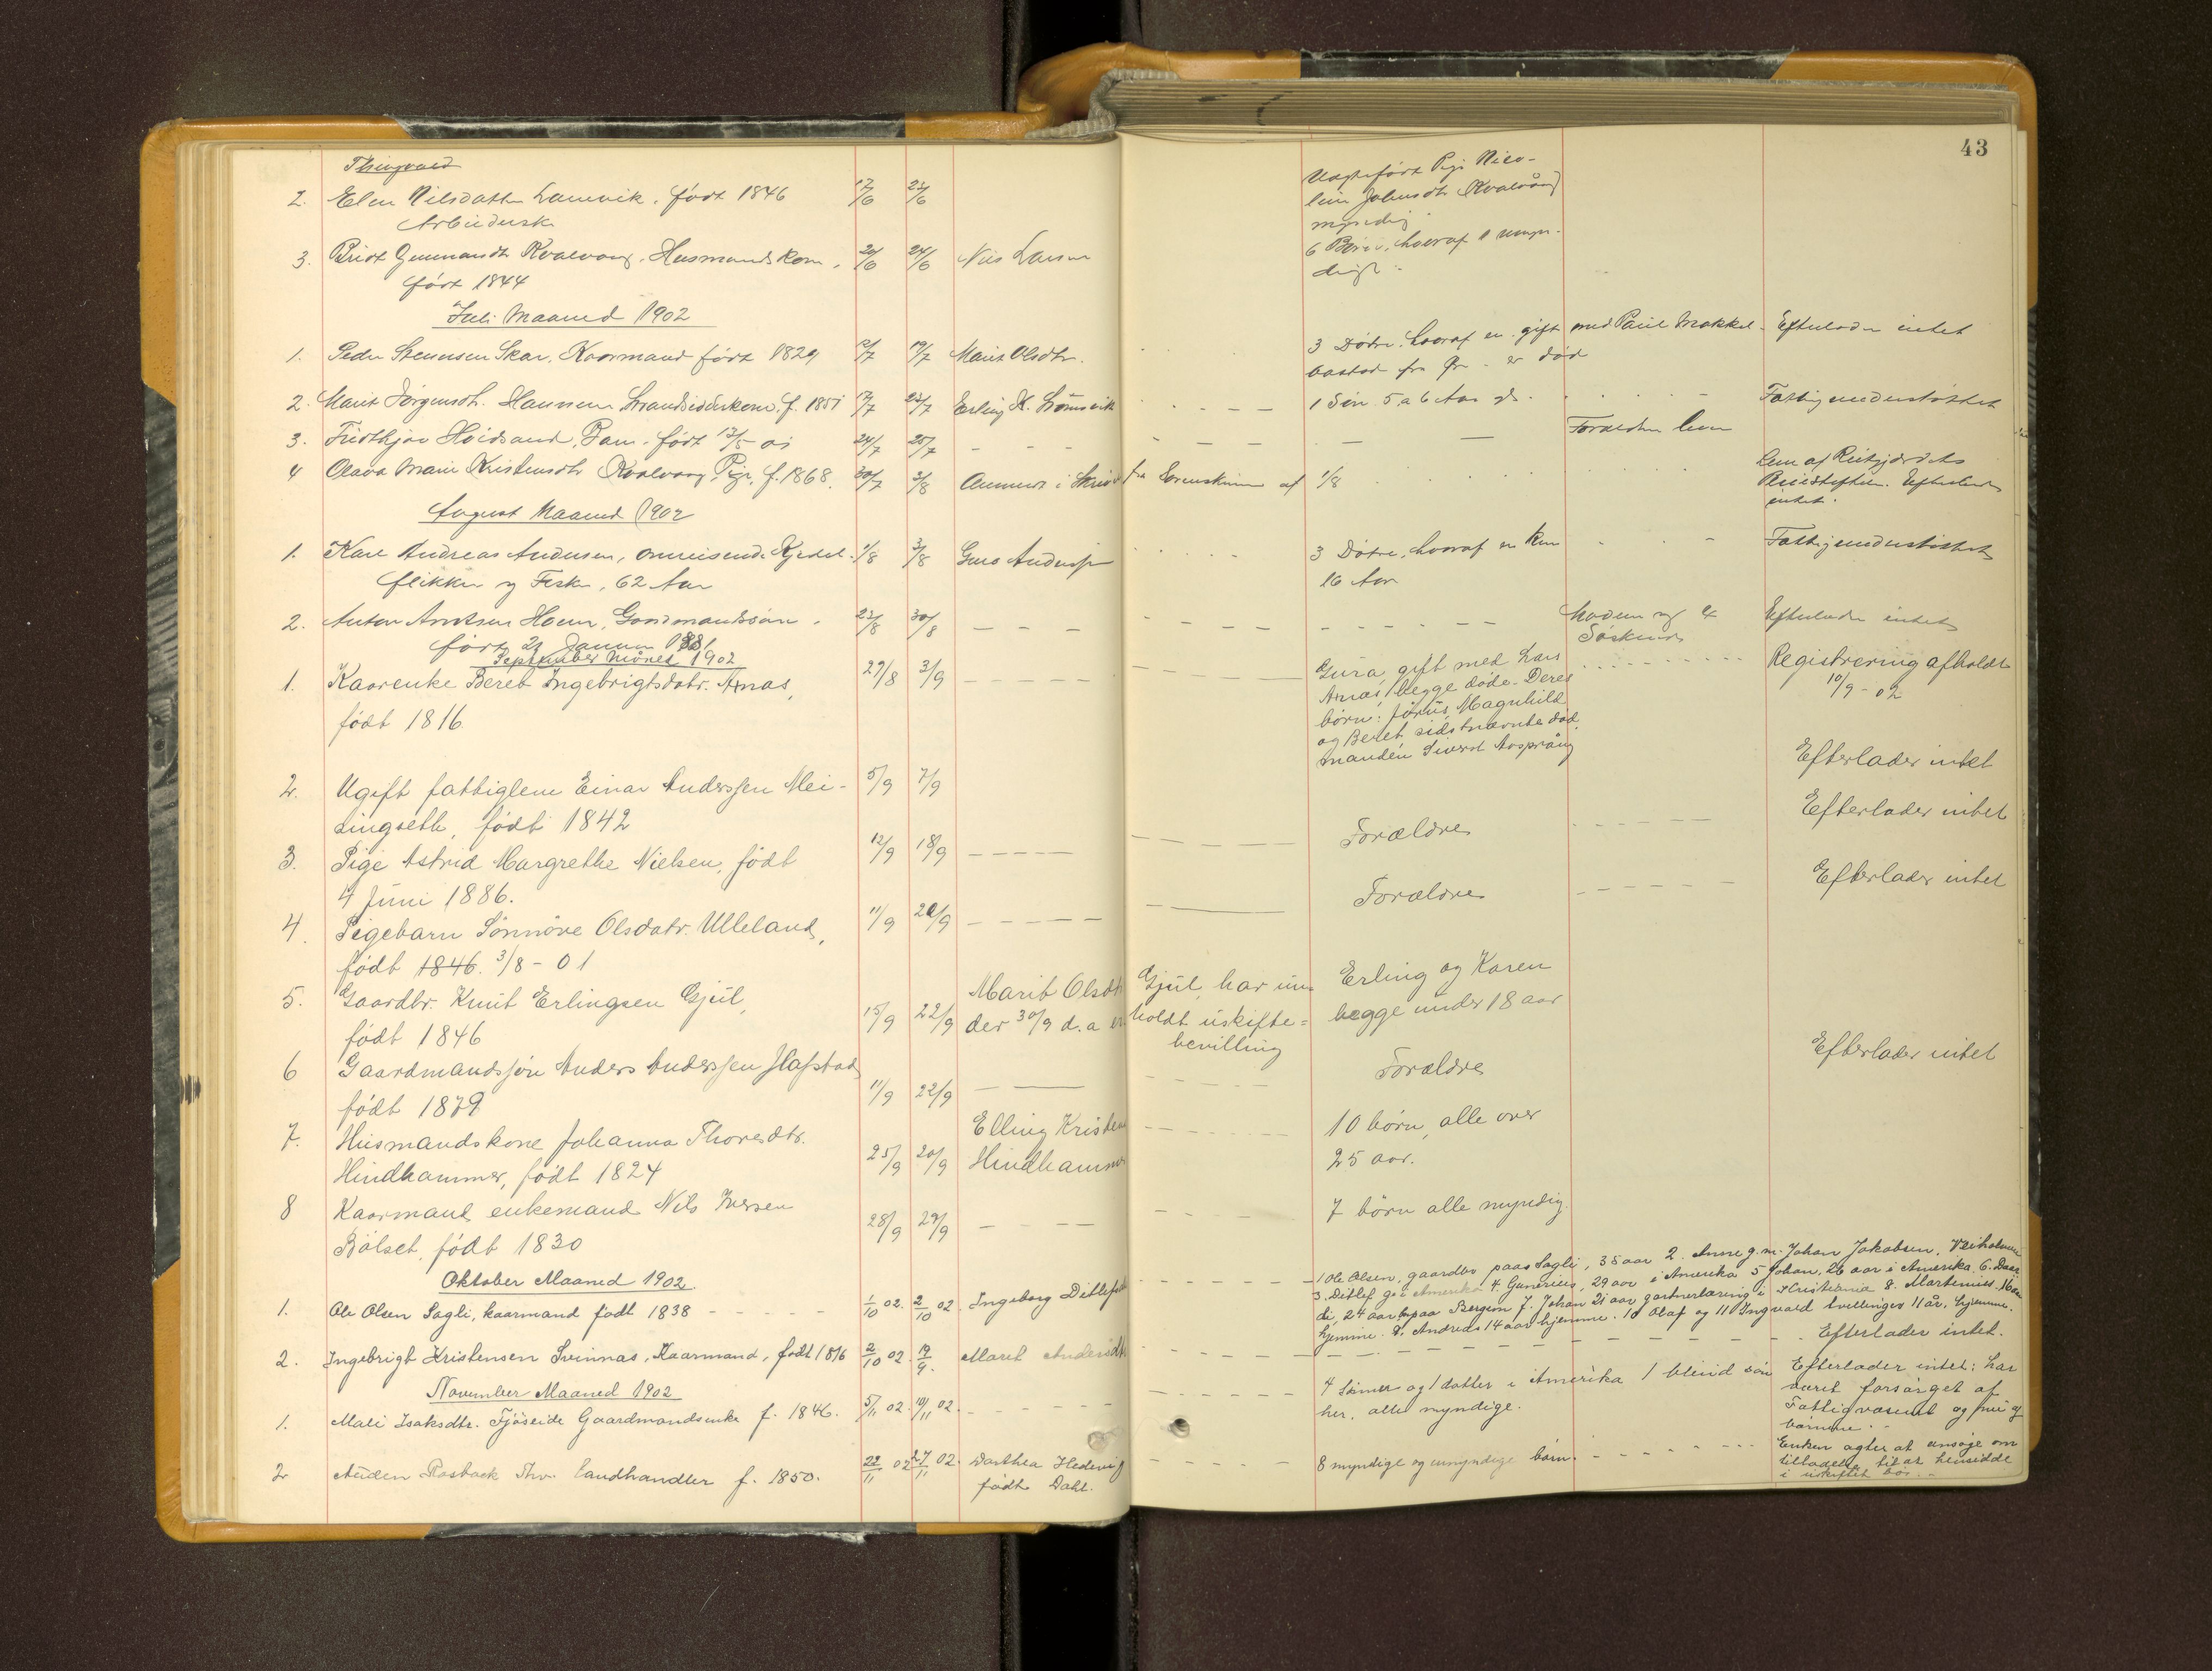 43
Thingvold
2. Elen Nilsdatter Lamvik, født 1846 17/6 23/6
Arbeiderske
Uægtefødt Pige Nico-
line Johnsdtr Kvalvåg
myndig
3. Brit Gunnarsdtr Kvalvaag, Husmandskone, 20/6 24/6 Nils Larsen 6 Børn, hvoraf 1 umyn-
født 1844 digt
Juli Maaned 1902
1. Peder Steensen Skar, Kaarmand født 1829 12/7 19/7 Marit Olsdtr. 3 Døtre, hvoraf en gift med Paul Mokkel- Efterlader intet
bostad fra Ør - er død
2. Marit Jørgensdt. Hansen Strandsidderkone, f. 1851 17/7 23/7 Erling K. Strømsvik 1 Søn 5 a 6 Aar gl. Fattigunderstøttet
3. Fridthjov Høidsand, Barn, født 13/5 01 24/7 25/7 - - - Forældrene lever
4 Olava Marie Kristensdtr Kvalvaag, Pige, f. 1868. 30/7 3/8 Anmeldt i Skriv fra Sorenskriver af 1/8 Lem af Reitgjærdets
Pleiestiftelse. Efterlader
intet.
August Maaned 1902
1. Karl Andreas Andersen, omreisende Kjedel- 1/8 3/8 Guro Andersen 3 Døtre, hvoraf en kun Fattigunderstøttet
flikker og Fisker, 62 Aar 16 Aar
2. Anton Arntsen Hoem, Gaardmandssøn 23/8 30/8 - - - Moderen og 4 Efterlader intet
født 21 Januar 1881 Søskende
September Måned 1902
1. Kaarenke Beret Ingebrigtsdatr. Aknas, 27/8 3/9 - - - - Gura, gift med Lars Registrering afholdt
født 1816 Aknas, begge døde. Deres 10/9 - 02
børn: Jørus, Magnhild
og Beret sidstnævnte død,
manden Sivert Aasprång
2. Ugift fattiglem Einar Anderssen Mei- 5/9 7/9 Efterlader intet
singseth, født 1842
3. Pige Astrid Margrethe Nielsen, født 12/9 18/9 - - - - Forældre Efterlader intet
4 Juni 1886.
4. Pigebarn Sønnøve Olsdatr. Ulleland, 11/9 20/9 - - - - Forældre Efterlader intet
født 1846. 3/8 - 01
5. Gaardbr. Knut Erlingsen Gjul, 15/9 22/9 Marit Olsdt Gjul, har un- Erling og Karen
født 1846 der 30/9 d.a er holdt uskifte= begge under 18 aar
bevilling
6 Gaardmandssøn Anders Anderssen Hafstad 11/9 22/9 - - Forældre Efterlader intet
født 1879
7. Husmandskone Johanna Thoresdtr. 25/9 20/9 Elling Kristen 10 børn, alle over
Hindhammer, født 1824 Hindhammer 25 aar.
8 Kaarmand, enkemand Nils Iversen 28/9 29/9 - - - 7 børn alle myndig.
Bølset, født 1830
Oktober Maaned 1902.
1. Ole Olsen Sagli, kaarmand født 1838 - - - - 1/10 02. 2/10 02. Ingeborg Ditlefsdtr 1 Ole Olsen, gaardbr paa Sagli, 35 aar 2. Anne g.m. Johan Jakobsen, Veiholmen
3. Ditlef g. i Amerika 4. Gunerius, 29 aar i Amerika 5 Johan, 26 aar i Amerika 6.
di, 24 aar paa Bergem 7. Johan 21 aar gartnerlæring i Kristiania 8. Martinius 16
hjemme. 9. Andreas 14 aar hjemme. 10 Olaf og 11 Ingvald tvillinger 11 år, hjemme.
2. Ingebrigt Kristensen Svinnas, Kaarmand, født 1816 2/10 02. 19/9. Maret Andersdtr - - - - Efterlader intet.
November Maaned 1902
1. Mali Isaksdtr. Fjøseide Gaardmandsenke f. 1846. 5/11 02. 10/11 02. - - - - 4 sønner og 1 datter i Amerika 1 blind søn Efterlader intet; har
her, alle myndige. været forsørget af
Fattigvæsenet og
børnene.
2 Auden Rosbach Thv. Landhandler f. 1850. 22/11 02 27/11 02. Dorthea Hedevig 8 myndige og umyndige børn. - - - - Enken agter at ansøge om
født Dahl. tilladelse til at hensidde
i uskiftet bo.